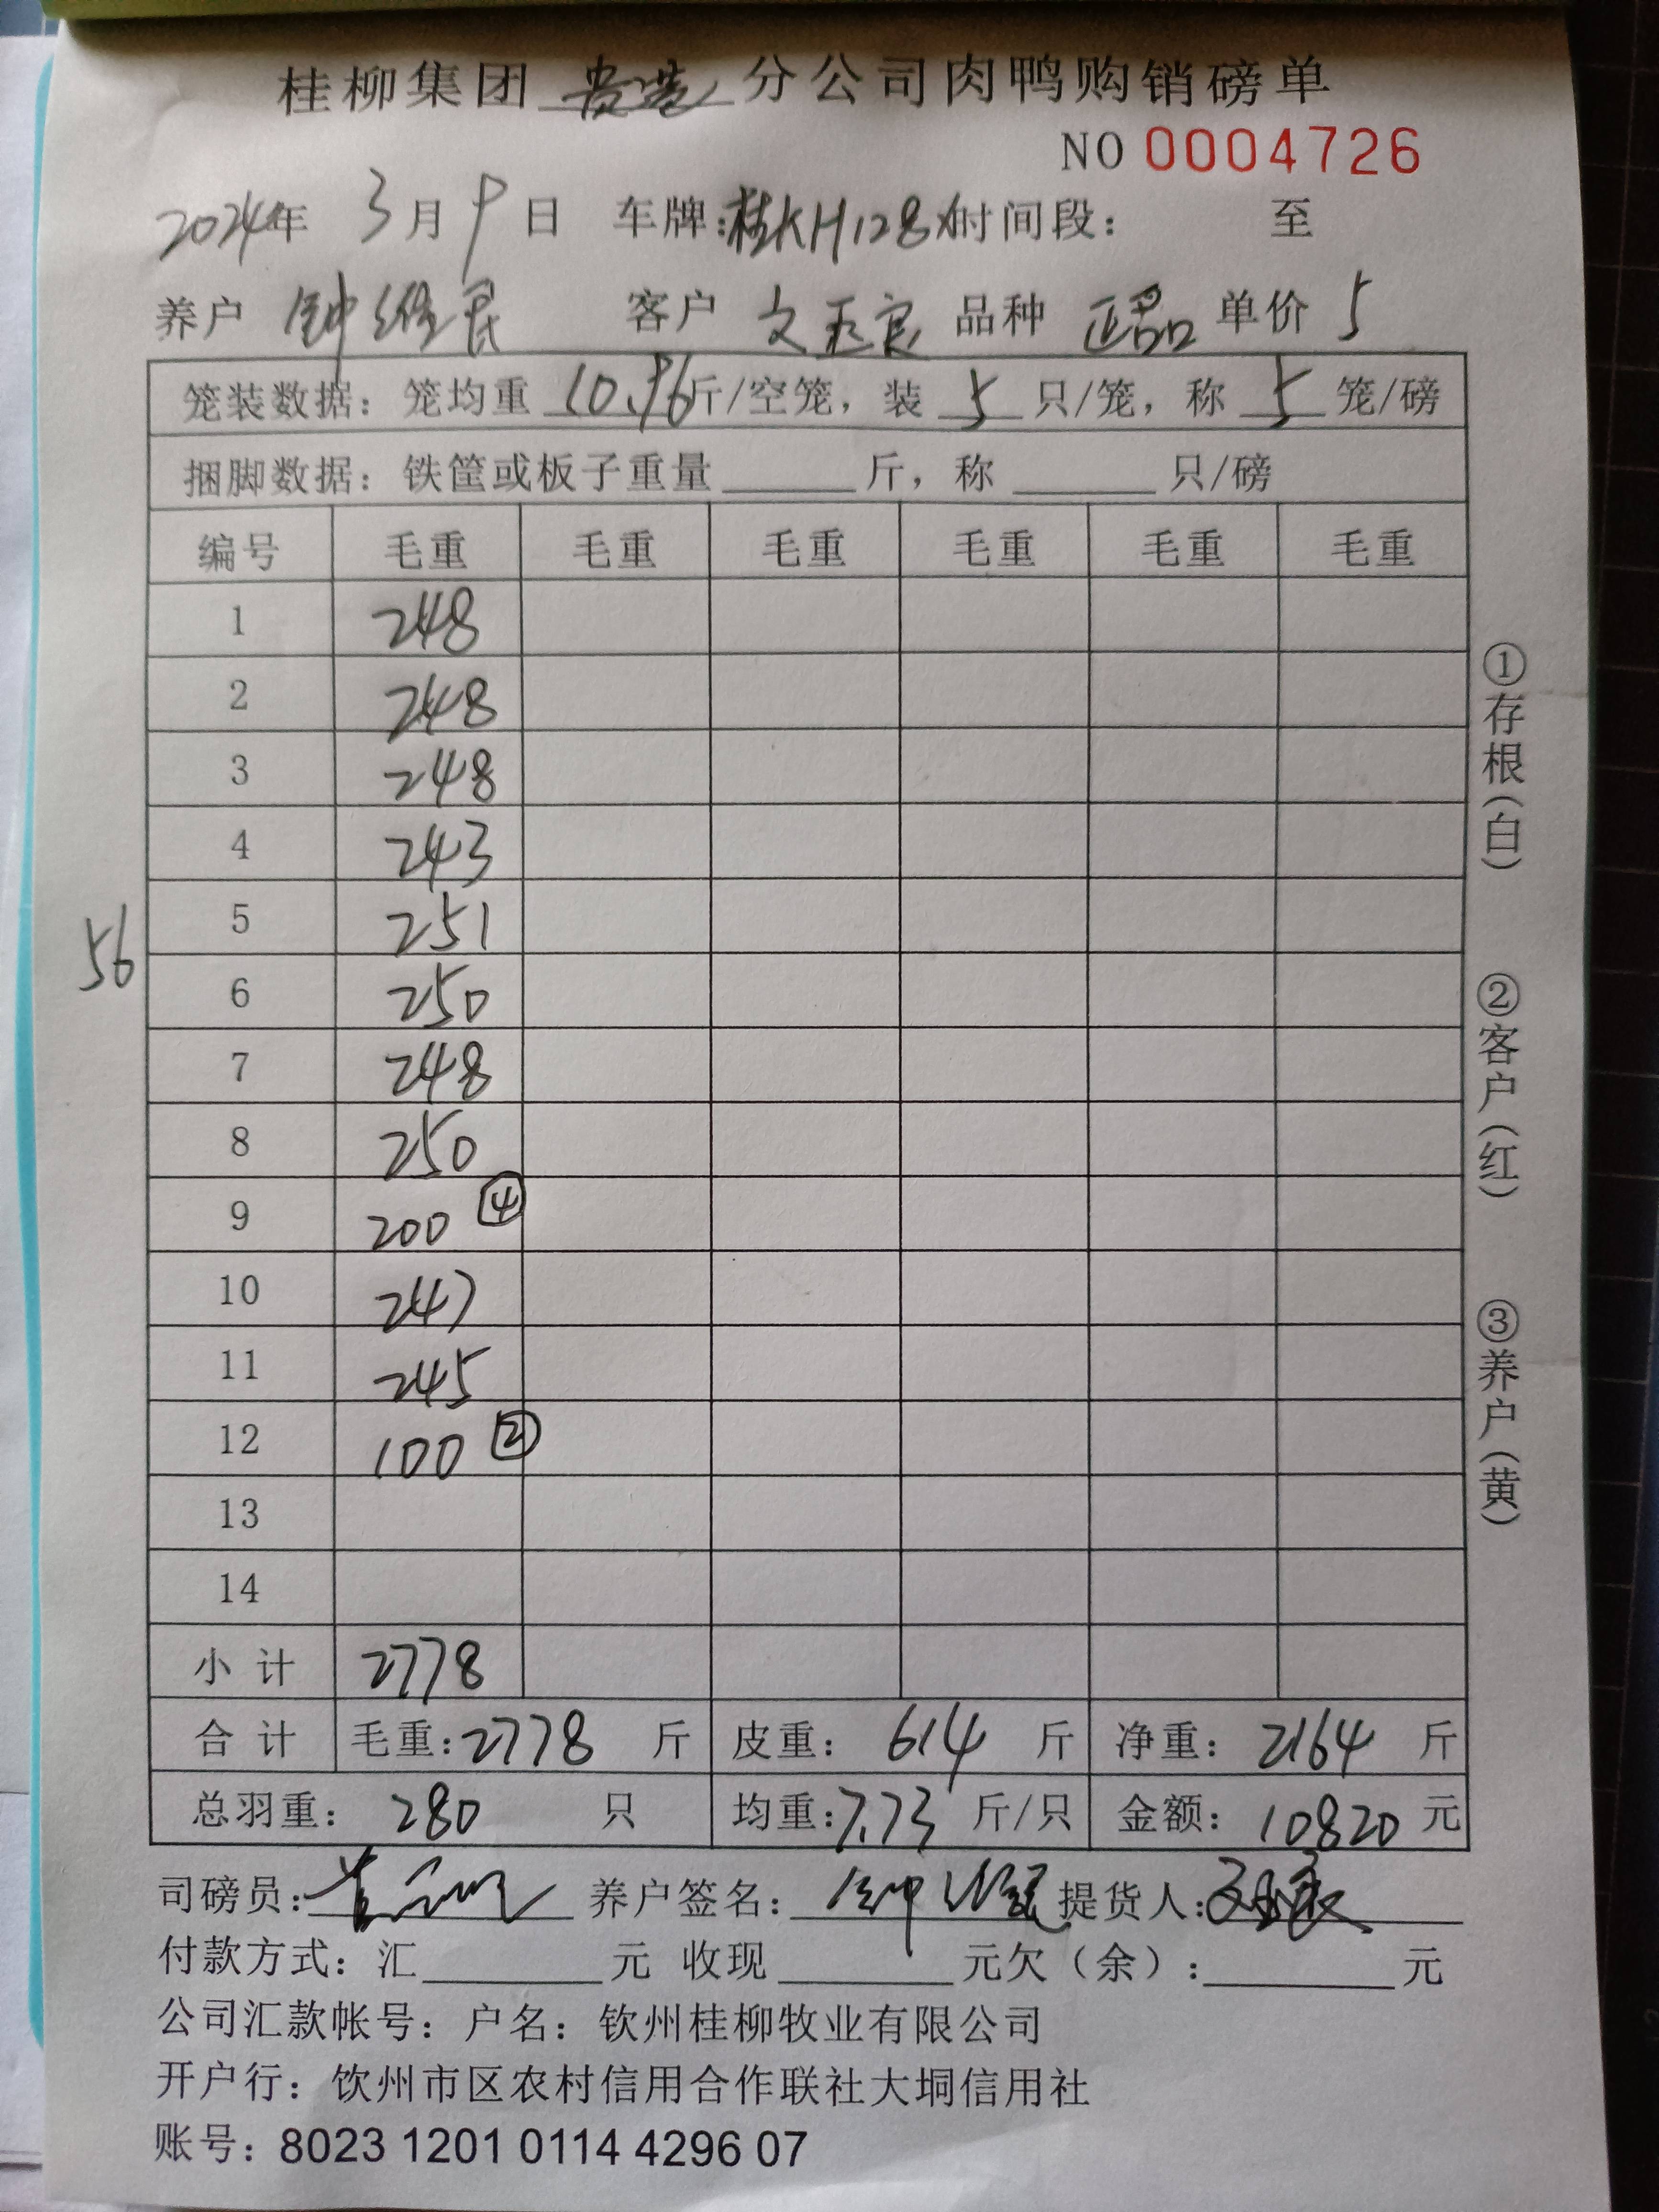 桂柳集团 贵港 分公司肉鸭购销磅单
NO 0004726
2024年 3月 9日 车牌:桂KH128 时间段: 至
养户 钟维民 客户 文玉良 品种 正品 单价 5
笼装数据: 笼均重 10.96斤/空笼, 装 5 只/笼, 称 5 笼/磅
捆脚数据: 铁筐或板子重量______斤, 称______只/磅
编号 毛重 毛重 毛重 毛重 毛重 毛重
1 248
2 248
3 248
4 243
5 251
6 250
7 248
8 250
9 200 ④
10 247
11 245
12 100 ②
13
14
小计 2778
合计 毛重:2778 斤 皮重: 614 斤 净重: 2164 斤
总羽重: 280 只 均重:7.73 斤/只 金额: 10820 元
56
①存根(白)
②客户(红)
③养户(黄)
司磅员: 养户签名: 钟维民 提货人:
付款方式: 汇______元 收现______元欠(余):______元
公司汇款帐号: 户名: 钦州桂柳牧业有限公司
开户行: 钦州市区农村信用合作联社大垌信用社
账号: 8023 1201 0114 4296 07